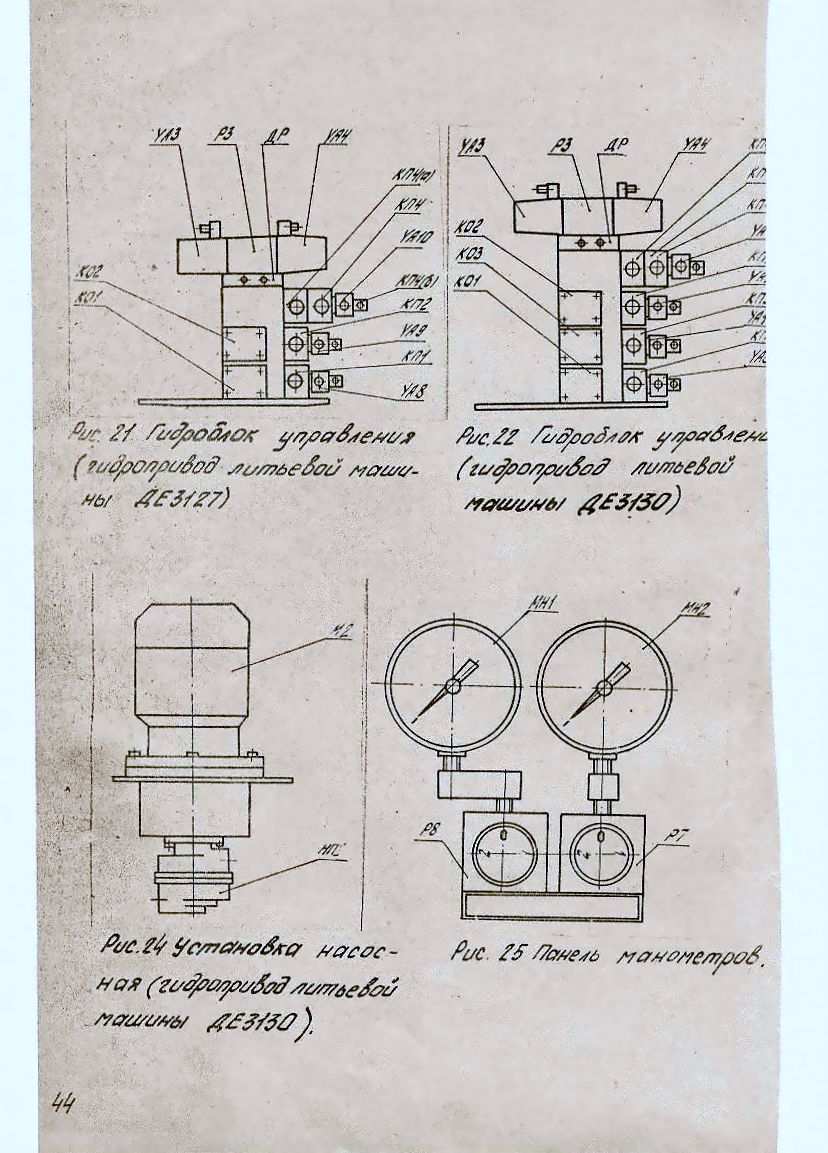 УА3 Р3 ДР УА4
КП4(а)
КП4
УА10
КП4(В)
КП2
УА9
КП1
УА8
КО2
КО1
Рис. 21 Гидроблок управления
(гидропривод литьевой маши-
ны ДЕ3127)
УА3 Р3 ДР УА4
КО2
КО3
КО1
Рис.22 Гидроблок управлен
(гидропривод литьевой
машины ДЕ3130)
М2
НП2
Рис.24 Установка насос-
ная (гидропривод литьевой
машины ДЕ3130).
МН1 МН2
Р8 Р7
0 0
Рис. 25 Панель манометров.
44